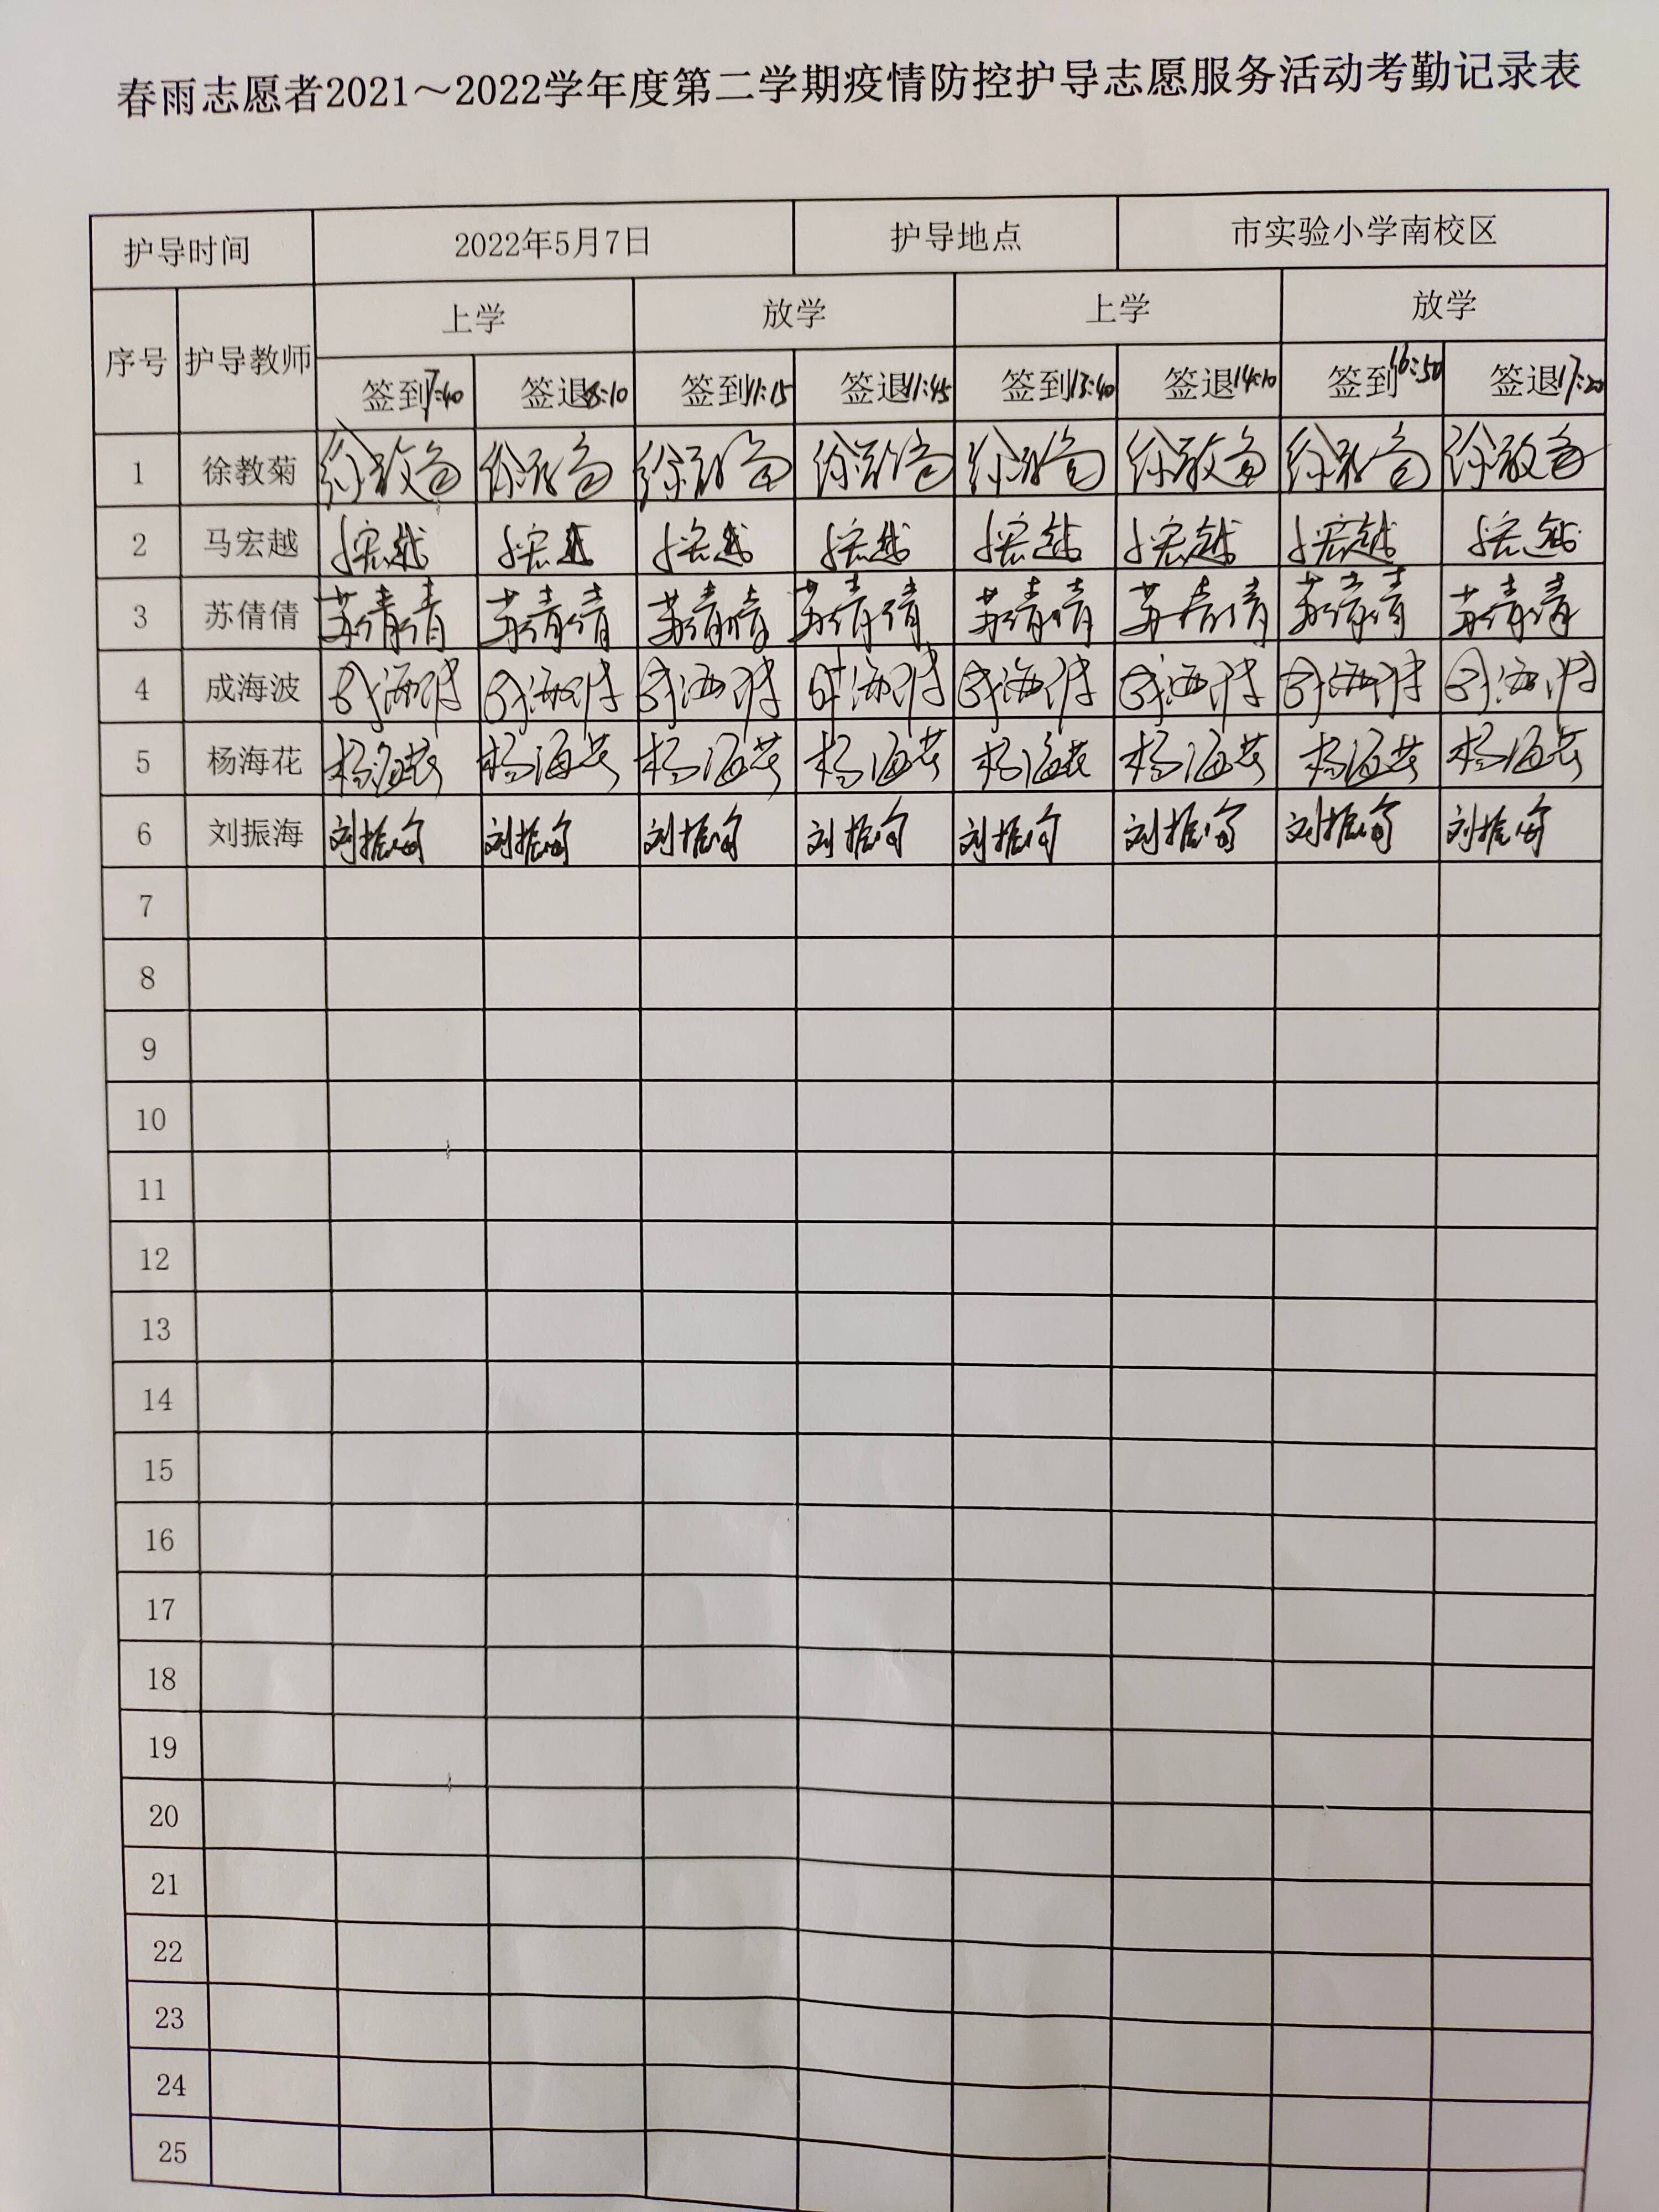 春雨志愿者2021～2022学年度第二学期疫情防控护导志愿服务活动考勤记录表
护导时间 2022年5月7日 护导地点 市实验小学南校区
序号 护导教师 上学 放学 上学 放学
签到7:40 签退8:10 签到11:15 签退11:45 签到13:40 签退14:10 签到16:50 签退17:20
1 徐教菊 徐教菊 徐教菊 徐教菊 徐教菊 徐教菊 徐教菊 徐教菊 徐教菊
2 马宏越 马宏越 马宏越 马宏越 马宏越 马宏越 马宏越 马宏越 马宏越
3 苏倩倩 苏倩倩 苏倩倩 苏倩倩 苏倩倩 苏倩倩 苏倩倩 苏倩倩 苏倩倩
4 成海波 成海波 成海波 成海波 成海波 成海波 成海波 成海波 成海波
5 杨海花 杨海花 杨海花 杨海花 杨海花 杨海花 杨海花 杨海花 杨海花
6 刘振海 刘振海 刘振海 刘振海 刘振海 刘振海 刘振海 刘振海 刘振海
7
8
9
10
11
12
13
14
15
16
17
18
19
20
21
22
23
24
25